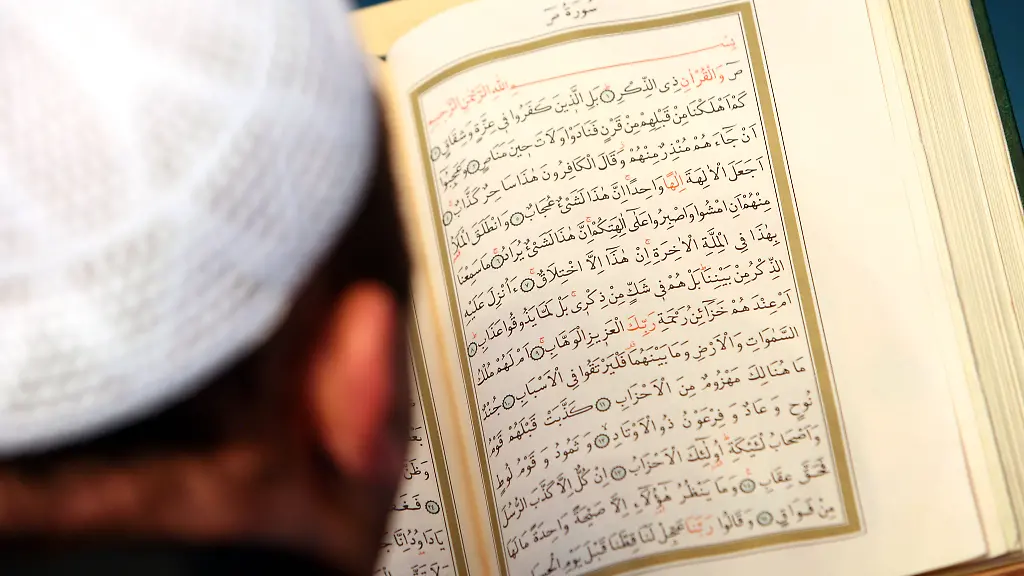 سُورَةُ صٓ
بِسْمِ اللّٰهِ الرَّحْمٰنِ الرَّحِيمِ
صٓ وَالْقُرْاٰنِ ذِي الذِّكْرِ ١ بَلِ الَّذِينَ كَفَرُوا فِي عِزَّةٍ وَشِقَاقٍ ٢
كَمْ اَهْلَكْنَا مِنْ قَبْلِهِمْ مِنْ قَرْنٍ فَنَادَوْا وَلَاتَ حِينَ مَنَاصٍ ٣ وَعَجِبُوا
اَنْ جَاءَهُمْ مُنْذِرٌ مِنْهُمْ وَقَالَ الْكَافِرُونَ هٰذَا سَاحِرٌ كَذَّابٌ ٤
اَجَعَلَ الْاٰلِهَةَ اِلٰهًا وَاحِدًا اِنَّ هٰذَا لَشَيْءٌ عُجَابٌ ٥ وَانْطَلَقَ الْمَلَاُ
مِنْهُمْ اَنِ امْشُوا وَاصْبِرُوا عَلٰى اٰلِهَتِكُمْ اِنَّ هٰذَا لَشَيْءٌ يُرَادُ ٦ مَا سَمِعْنَا
بِهٰذَا فِي الْمِلَّةِ الْاٰخِرَةِ اِنْ هٰذَا اِلَّا اخْتِلَاقٌ ٧ ءَاُنْزِلَ عَلَيْهِ
الذِّكْرُ مِنْ بَيْنِنَا بَلْ هُمْ فِي شَكٍّ مِنْ ذِكْرِي بَلْ لَمَّا يَذُوقُوا عَذَابِ ٨
اَمْ عِنْدَهُمْ خَزَائِنُ رَحْمَةِ رَبِّكَ الْعَزِيزِ الْوَهَّابِ ٩ اَمْ لَهُمْ مُلْكُ
السَّمٰوَاتِ وَالْاَرْضِ وَمَا بَيْنَهُمَا فَلْيَرْتَقُوا فِي الْاَسْبَابِ ١٠ جُنْدٌ
مَا هُنَالِكَ مَهْزُومٌ مِنَ الْاَحْزَابِ ١١ كَذَّبَتْ قَبْلَهُمْ قَوْمُ
نُوحٍ وَعَادٌ وَفِرْعَوْنُ ذُو الْاَوْتَادِ ١٢ وَثَمُودُ وَقَوْمُ لُوطٍ
وَاَصْحَابُ لْئَيْكَةِ اُولٰئِكَ الْاَحْزَابُ ١٣ اِنْ كُلٌّ اِلَّا كَذَّبَ الرُّسُلَ
فَحَقَّ عِقَابِ ١٤ وَمَا يَنْظُرُ هٰؤُلَاءِ اِلَّا صَيْحَةً وَاحِدَةً مَا لَهَا
مِنْ فَوَاقٍ ١٥ وَقَالُوا رَبَّنَا عَجِّلْ لَنَا قِطَّنَا قَبْلَ يَوْمِ الْحِسَابِ
يَا دَاوُدُ اِنَّا